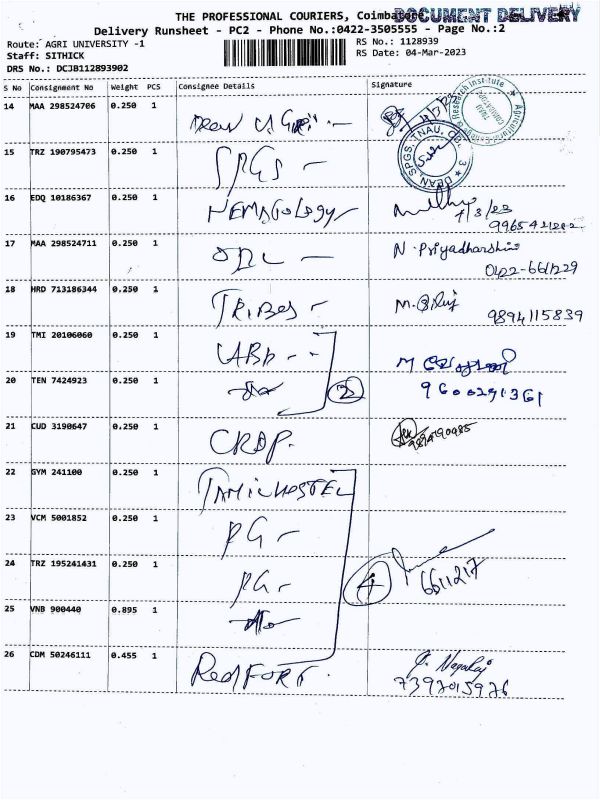 THE PROFESSIONAL COURIERS, Coimbatore
DOCUMENT DELIVERY
Delivery Runsheet - PC2 - Phone No.:0422-3505555 - Page No.:2
Route: AGRI UNIVERSITY -1
RS No.: 1128939
Staff: SITHICK
RS Date: 04-Mar-2023
DRS No.: DCJB112893902
S No Consignment No Weight PCS Consignee Details Signature
14 MAA 298524706 0.250 1 Dean
15 TRZ 190795473 0.250 1 SPGS
DEAN, SPGS, TNAU, CBE. 3
16 EDQ 10186367 0.250 1 NEMATOLOGY
4/3/23
17 MAA 298524711 0.250 1 N. Priyadharshini
0422-6611229
18 HRD 713186344 0.250 1 TRIBES
9894115839
19 TMI 20106060 0.250 1 CABD
20 TEN 7424923 0.250 1 do 2
9600291361
21 CUD 3190647 0.250 1 CROP.
22 GYM 241100 0.250 1 TAMIL HOSTEL
23 VCM 5001852 0.250 1 PG
24 TRZ 195241431 0.250 1 PG 4 6611217
25 VNB 900440 0.895 1 do
26 CDM 50246111 0.455 1 REDFORT. P. Nagaraj
7397015976